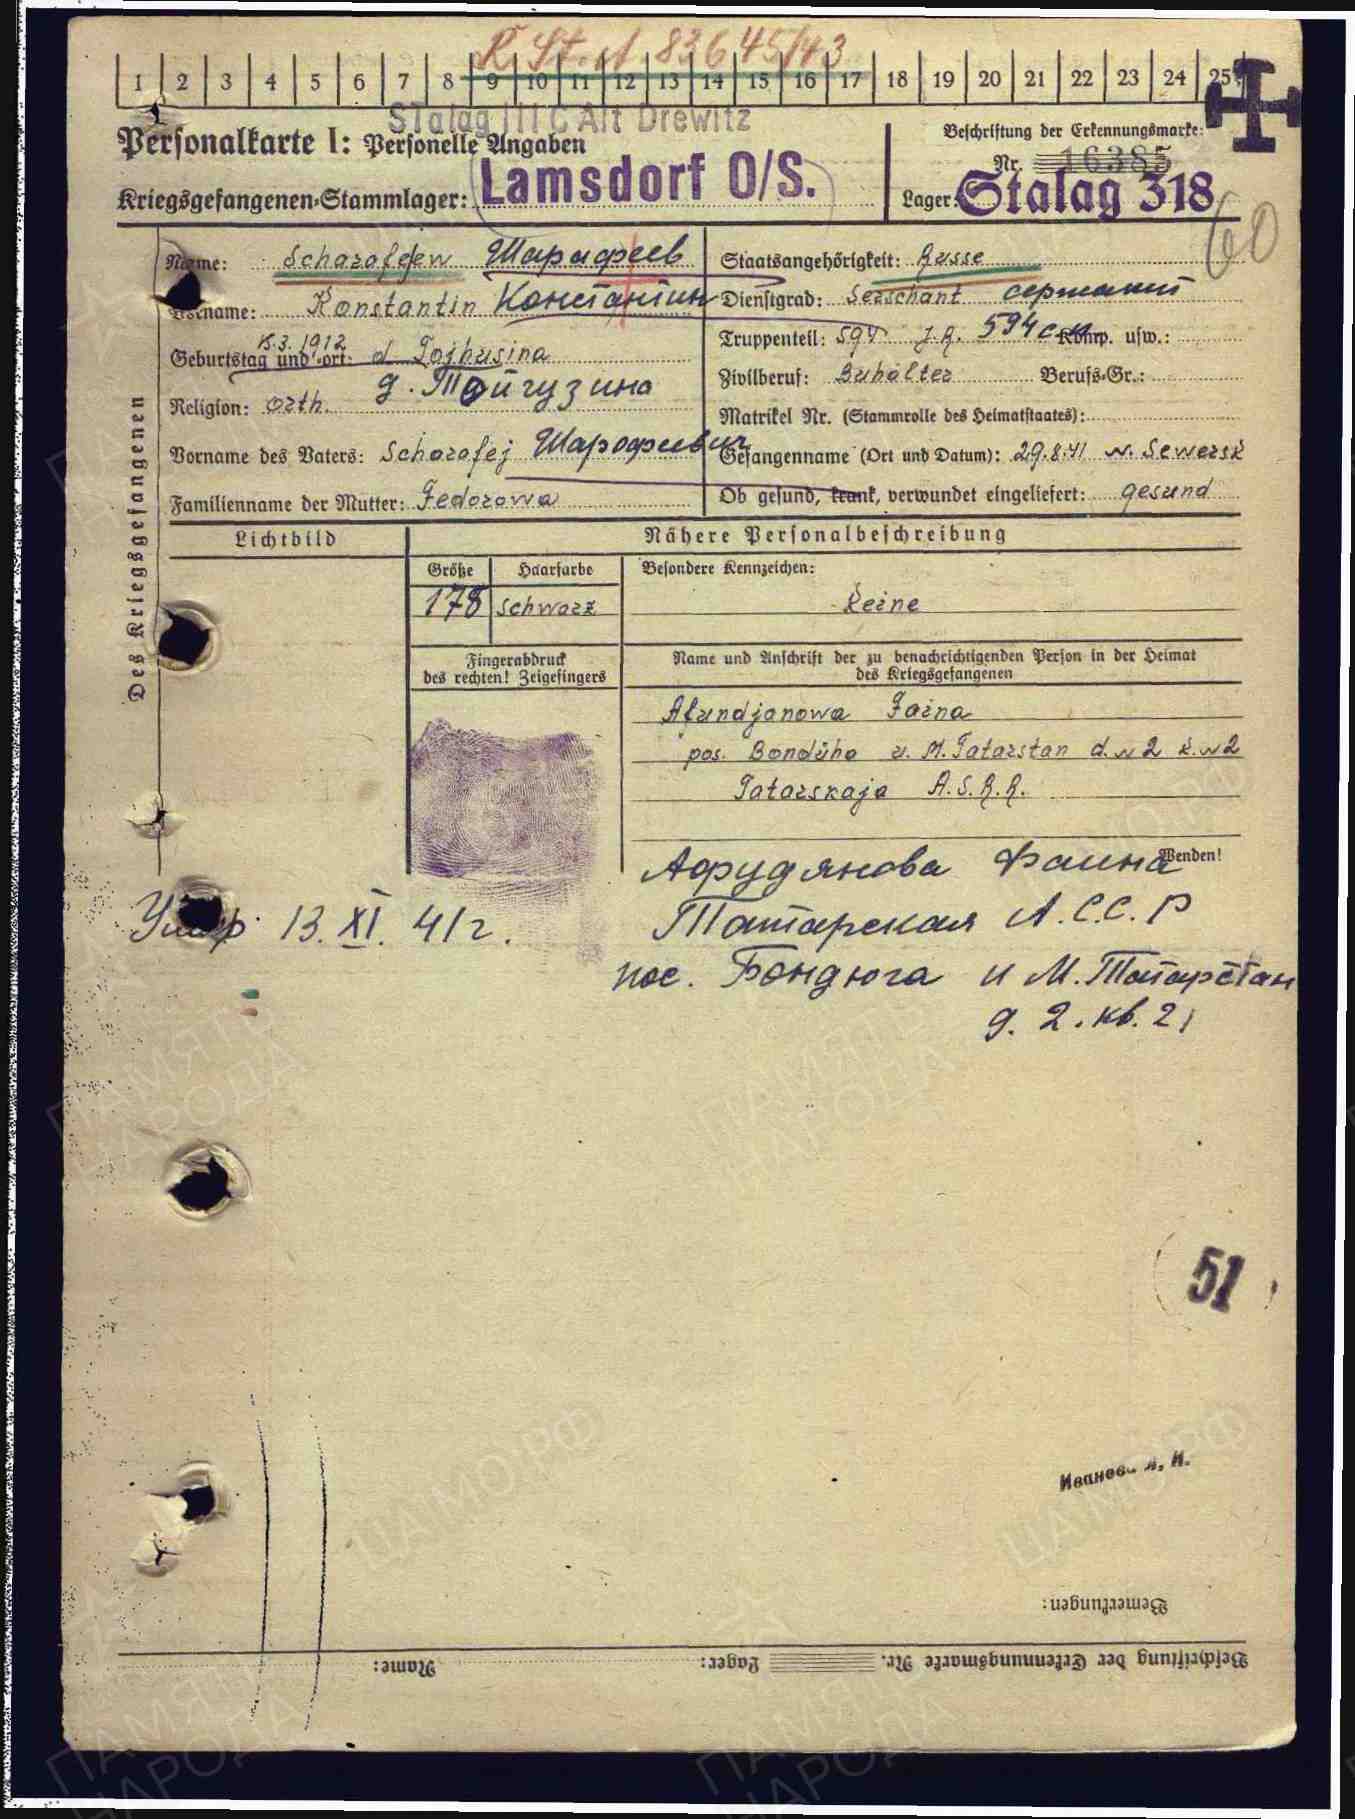 R St. A. 83645/43
1 2 3 4 5 6 7 8 9 10 11 12 13 14 15 16 17 18 19 20 21 22 23 24 25
Stalag III C Alt Drewitz
Personalkarte I: Personelle Angaben
Beschriftung der Erkennungsmarke:
Nr. 16385
Kriegsgefangenen-Stammlager: Lamsdorf O/S.
Lager: Stalag 318
60
Des Kriegsgefangenen
Name: Scharafejew Шарафеев
Staatsangehörigkeit: Russe
Vorname: Konstantin Константин
Dienstgrad: Serschant сержант
Geburtstag und -ort: 15.3.1912 d Tojhusina
Truppenteil: 594 J.R. 594 с.п. Komp. usw.:
д. Тойгузино
Zivilberuf: Buhalter Berufs-Gr.:
Religion: Orth.
Matrikel Nr. (Stammrolle des Heimatstaates):
Vorname des Vaters: Scharafej Шарафеевич
Gefangenname (Ort und Datum): 29.8.41 n. Sewersk
Familienname der Mutter: Fedorowa
Ob gesund, krank, verwundet eingeliefert: gesund
Lichtbild
Nähere Personalbeschreibung
Größe Haarfarbe Besondere Kennzeichen:
178 schwarz Keine
Fingerabdruck
des rechten! Zeigefingers
Name und Anschrift der zu benachrichtigenden Person in der Heimat
des Kriegsgefangenen
Afundjanowa Faina
pos. Bondüha u. M. Tatarstan d. N 2 k. N 2
Tatarskaja A.S.R.R.
Wenden!
Афрудянова Фаина
Умер 13. XI. 41 г.
Татарская А.С.С.Р
пос. Бондюга и М. Татарстан
д. 2. кв. 2
51
Bemerkungen:
Beschriftung der Erkennungsmarke Nr. Lager: Name:
ПАМЯТЬ
НАРОДА
ЦАМО.РФ